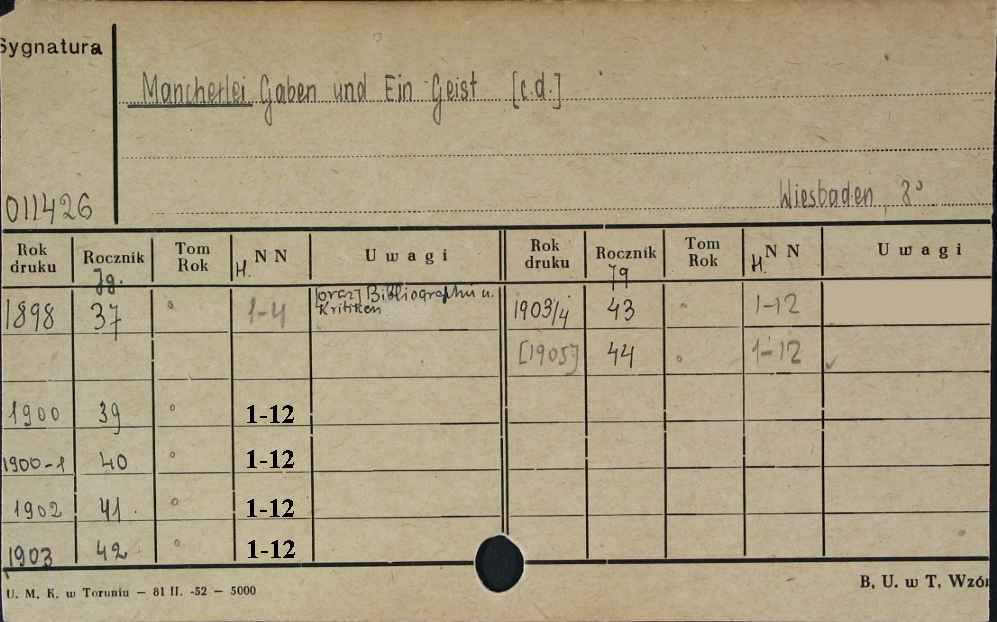 Sygnatura
Mancherlei Gaben und Ein Geist [c.d.]
011426
Wiesbaden, 8°
Rok druku Rocznik Jg. Tom Rok H. N N Uwagi Rok druku Rocznik Jg Tom Rok H. N N Uwagi
1898 37 ° 1-4 [oraz] Bibliographii u. Kritiken 1903/4 43 ° 1-12
[1905] 44 ° 1-12
1900 39 ° 1-12
1900-1 40 ° 1-12
1902 41 ° 1-12
1903 42 ° 1-12
U. M. K. w Toruniu — 81 II. -52 — 5000
B. U. w T, Wzór